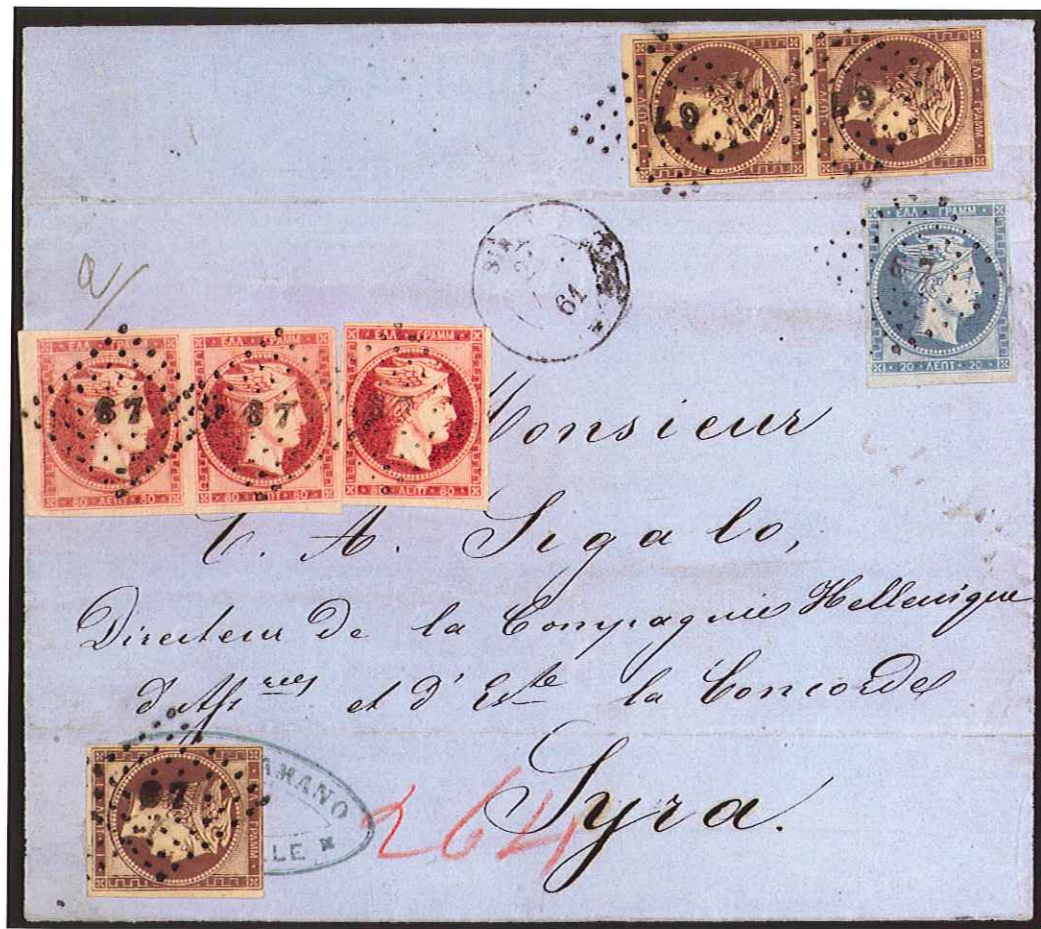 67
67
ΕΛΛ ΓΡΑΜΜ
ΛΕΠΤ
ΕΛΛ ΓΡΑΜΜ
20 ΛΕΠΤ 20
61
ΕΛΛ ΓΡΑΜΜ
67
80 ΛΕΠΤ 80
ΕΛΛ ΓΡΑΜΜ
67
80 ΛΕΠΤ 80
ΕΛΛ ΓΡΑΜΜ
80 ΛΕΠΤ 80
Monsieur
A. Sigalo,
Directeur de la Compagnie Hellenique
d'Assces et d'Este la Concorde
Syra.
67
ΓΡΑΜΜ
264